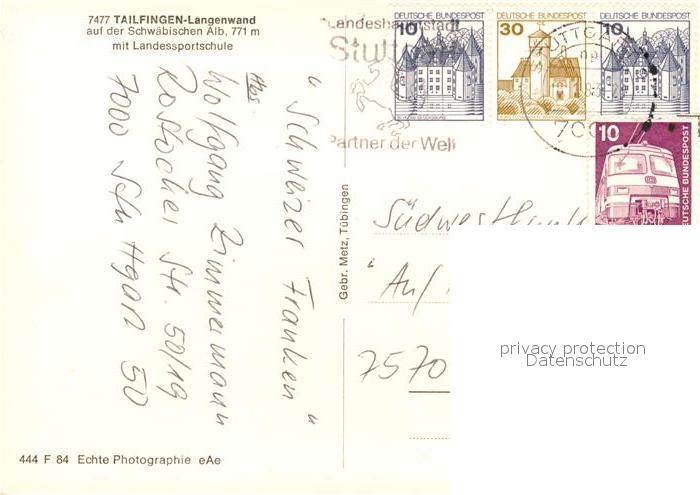 7477 TAILFINGEN-Langenwand
auf der Schwäbischen Alb, 771 m
mit Landessportschule
Landeshauptstadt
Stuttgart
Partner der Welt
DEUTSCHE BUNDESPOST
10
SCHLOSS GLÜCKSBURG
DEUTSCHE BUNDESPOST
30
DEUTSCHE BUNDESPOST
10
STUTTGART
DEUTSCHE BUNDESPOST
10
"Schweizer Franken"
Abs.
Wolfgang Zimmermann
Rostocker Str. 50/19
7000 Stuttgart 50
Gebr. Metz, Tübingen
Südwestfunk
"Auf
7570
privacy protection
Datenschutz
444 F 84 Echte Photographie eAe